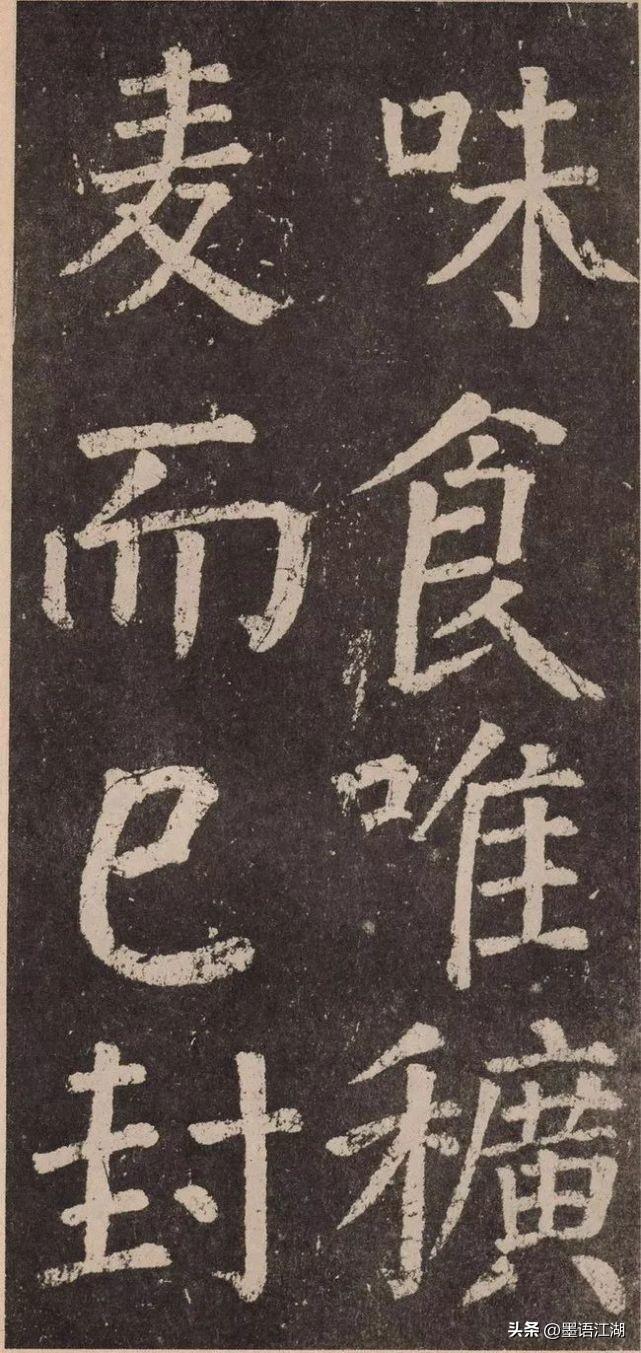 味食唯穬
麦而已封
头条 @墨语江湖